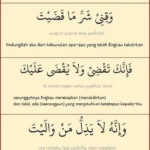 وَقِنِيْ شَرَّ مَا قَضَيْتَ
lindungilah aku dari keburukan apa-apa yang telah Engkau takdirkan
فَإِنَّكَ تَقْضِيْ وَلَا يُقْضَى عَلَيْكَ
sesungguhnya Engkau menetapkan (menakdirkan)
dan tidak ada (seorangpun) yang menjatuhkan ketetapan kepada-Mu
وَإِنَّهُ لَا يَذِلُّ مَنْ وَالَيْتَ